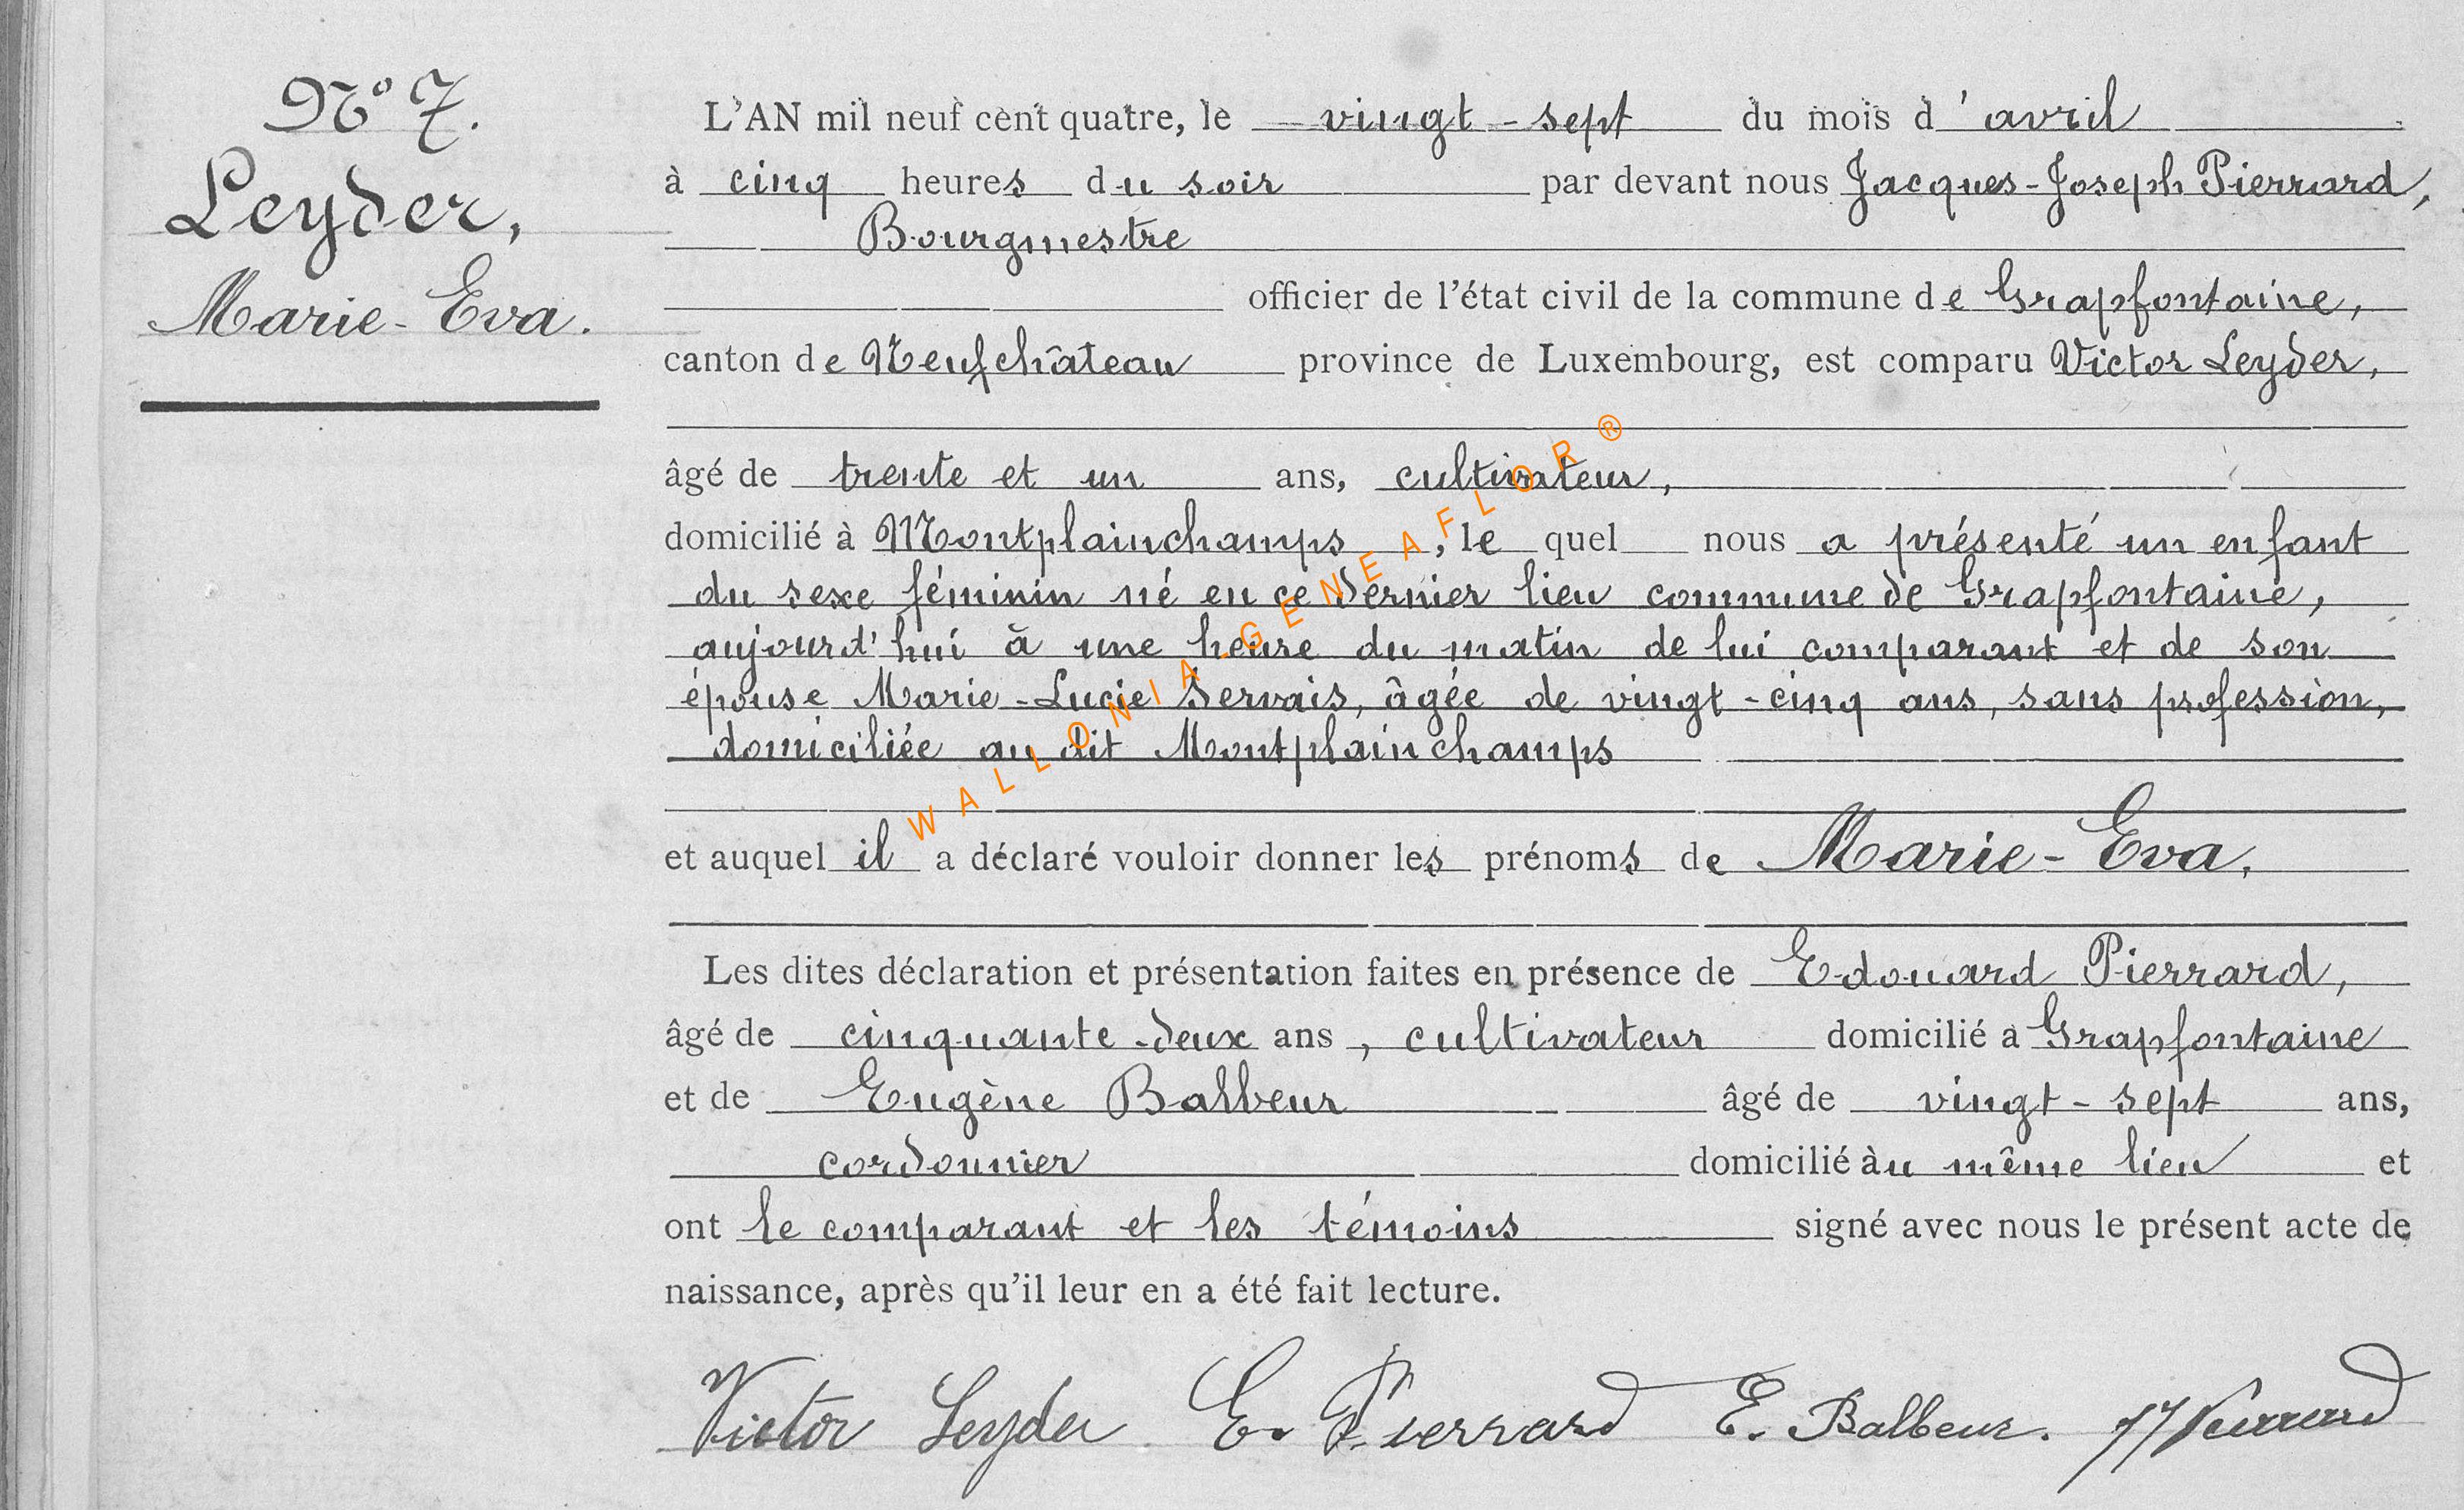 N° 7.
Leyder,
Marie-Eva.
L'AN mil neuf cent quatre, le vingt-sept du mois d'avril
à cinq heures du soir par devant nous Jacques-Joseph Pierrard,
Bourgmestre
officier de l'état civil de la commune de Grapfontaine,
canton de Neufchâteau province de Luxembourg, est comparu Victor Leyder,
âgé de trente et un ans, cultivateur,
domicilié à Montplainchamps, le quel nous a présenté un enfant
du sexe féminin né en ce dernier lieu commune de Grapfontaine,
aujourd'hui à une heure du matin de lui comparant et de son
épouse Marie-Lucie Servais, âgée de vingt-cinq ans, sans profession,
domiciliée au dit Montplainchamps
et auquel il a déclaré vouloir donner les prénoms de Marie-Eva,
Les dites déclaration et présentation faites en présence de Edouard Pierrard,
âgé de cinquante-deux ans, cultivateur domicilié à Grapfontaine
et de Eugène Balbeur âgé de vingt-sept ans,
cordonnier domicilié àu même lieu et
ont le comparant et les témoins signé avec nous le présent acte de
naissance, après qu'il leur en a été fait lecture.
Victor Leyder E. Pierrard E. Balbeur. JJ Pierrard
WALLONIA-GENEAFLOR®